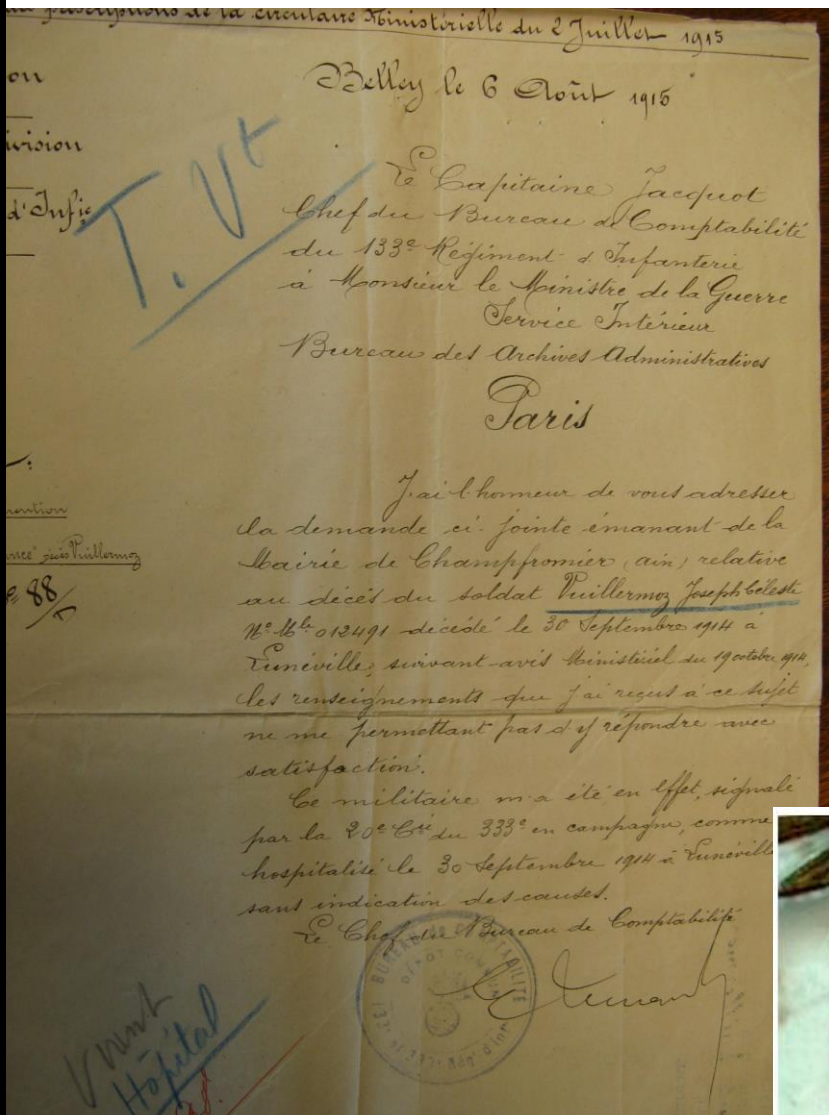 prescriptions de la circulaire Ministérielle du 2 Juillet 1915
Belley le 6 Août 1915
on
ivision
d'Infie
T. Vt
Le Capitaine Jacquot
Chef du Bureau de Comptabilité
du 133e Régiment d'Infanterie
à Monsieur le Ministre de la Guerre
Service Intérieur
Bureau des Archives Administratives
Paris
mention
décès Vuillermoz
88
J'ai l'honneur de vous adresser
la demande ci-jointe émanant de la
Mairie de Champfromier (ain) relative
au décès du soldat Vuillermoz Joseph Céleste
No Mle 012491 décédé le 30 Septembre 1914 à
Lunéville, suivant avis Ministériel du 19 octobre 1914,
les renseignements que j'ai reçus à ce sujet
ne me permettant pas d'y répondre avec
satisfaction.
Ce militaire m'a été en effet, signalé
par la 20e Cie du 333e en campagne, comme
hospitalisé le 30 Septembre 1914 à Lunéville
sans indication des causes.
Le Chef du Bureau de Comptabilité
BUREAU DE COMPTABILITÉ
DÉPOT COMMUN
Hôpital